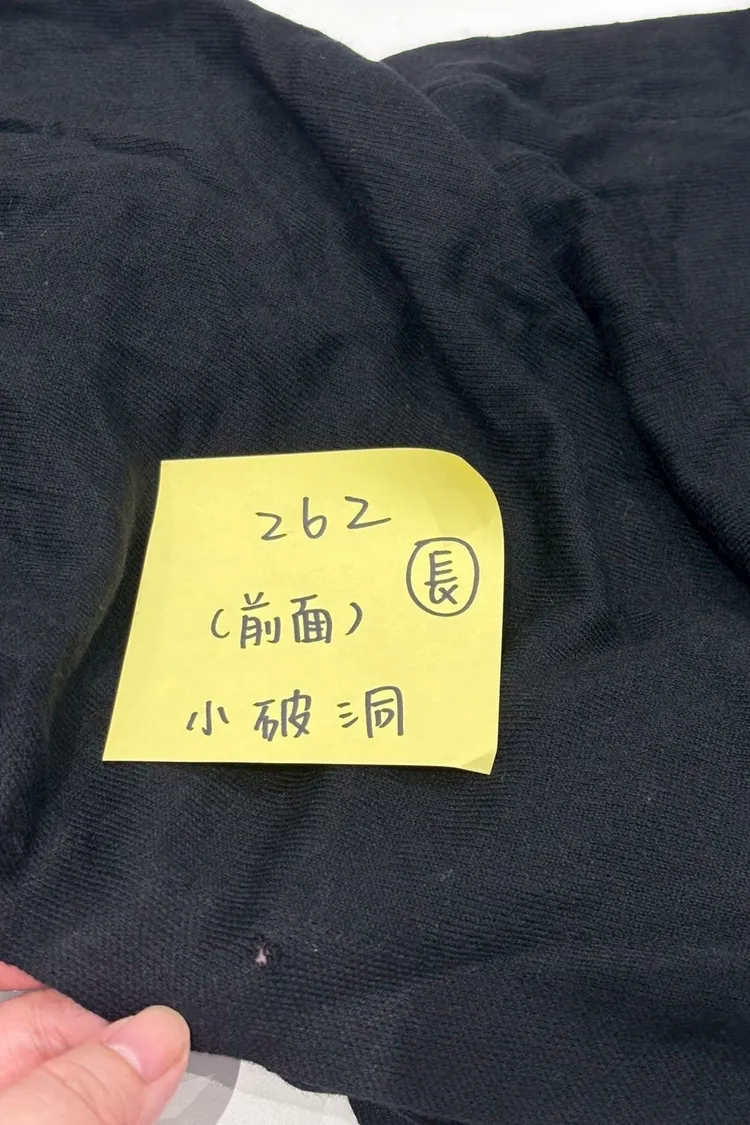 262
長
(前面)
小破洞